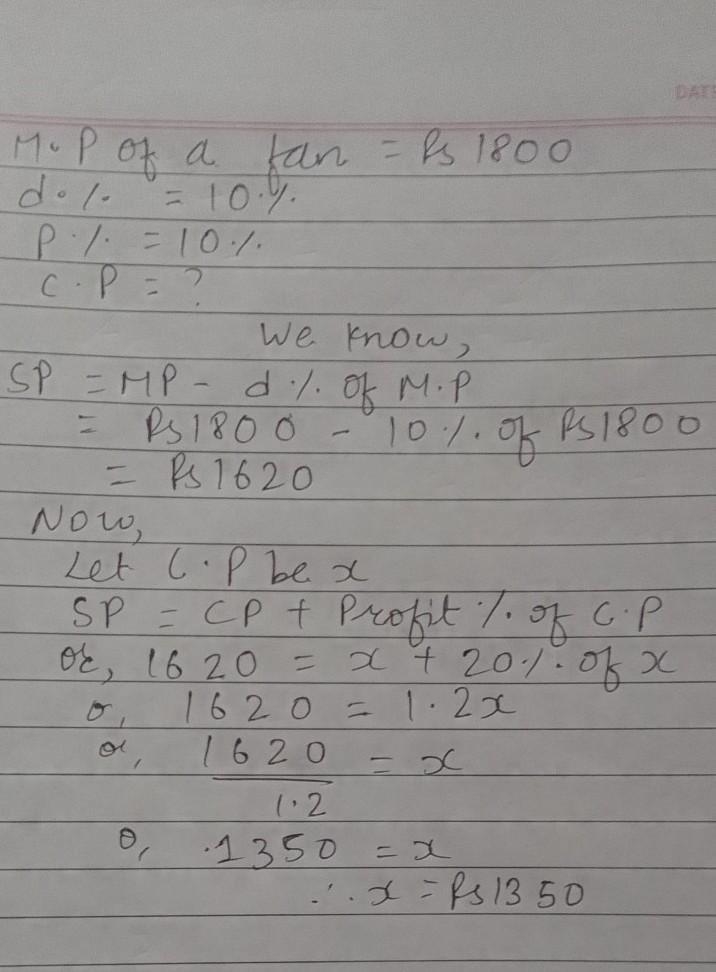 DATE
M.P of a fan = Rs 1800
d.% = 10.%
P.% = 10%
C.P = ?
We know,
SP = MP - d % of M.P
= Rs1800 - 10%. of Rs1800
= Rs1620
Now,
Let C.P be x
SP = CP + Profit %. of C.P
or, 1620 = x + 20%. of x
or, 1620 = 1.2x
or, 1620 = x
1.2
or, .1350 = x
∴ x = Rs1350